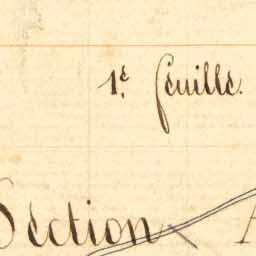 1.e feuille.
Section A